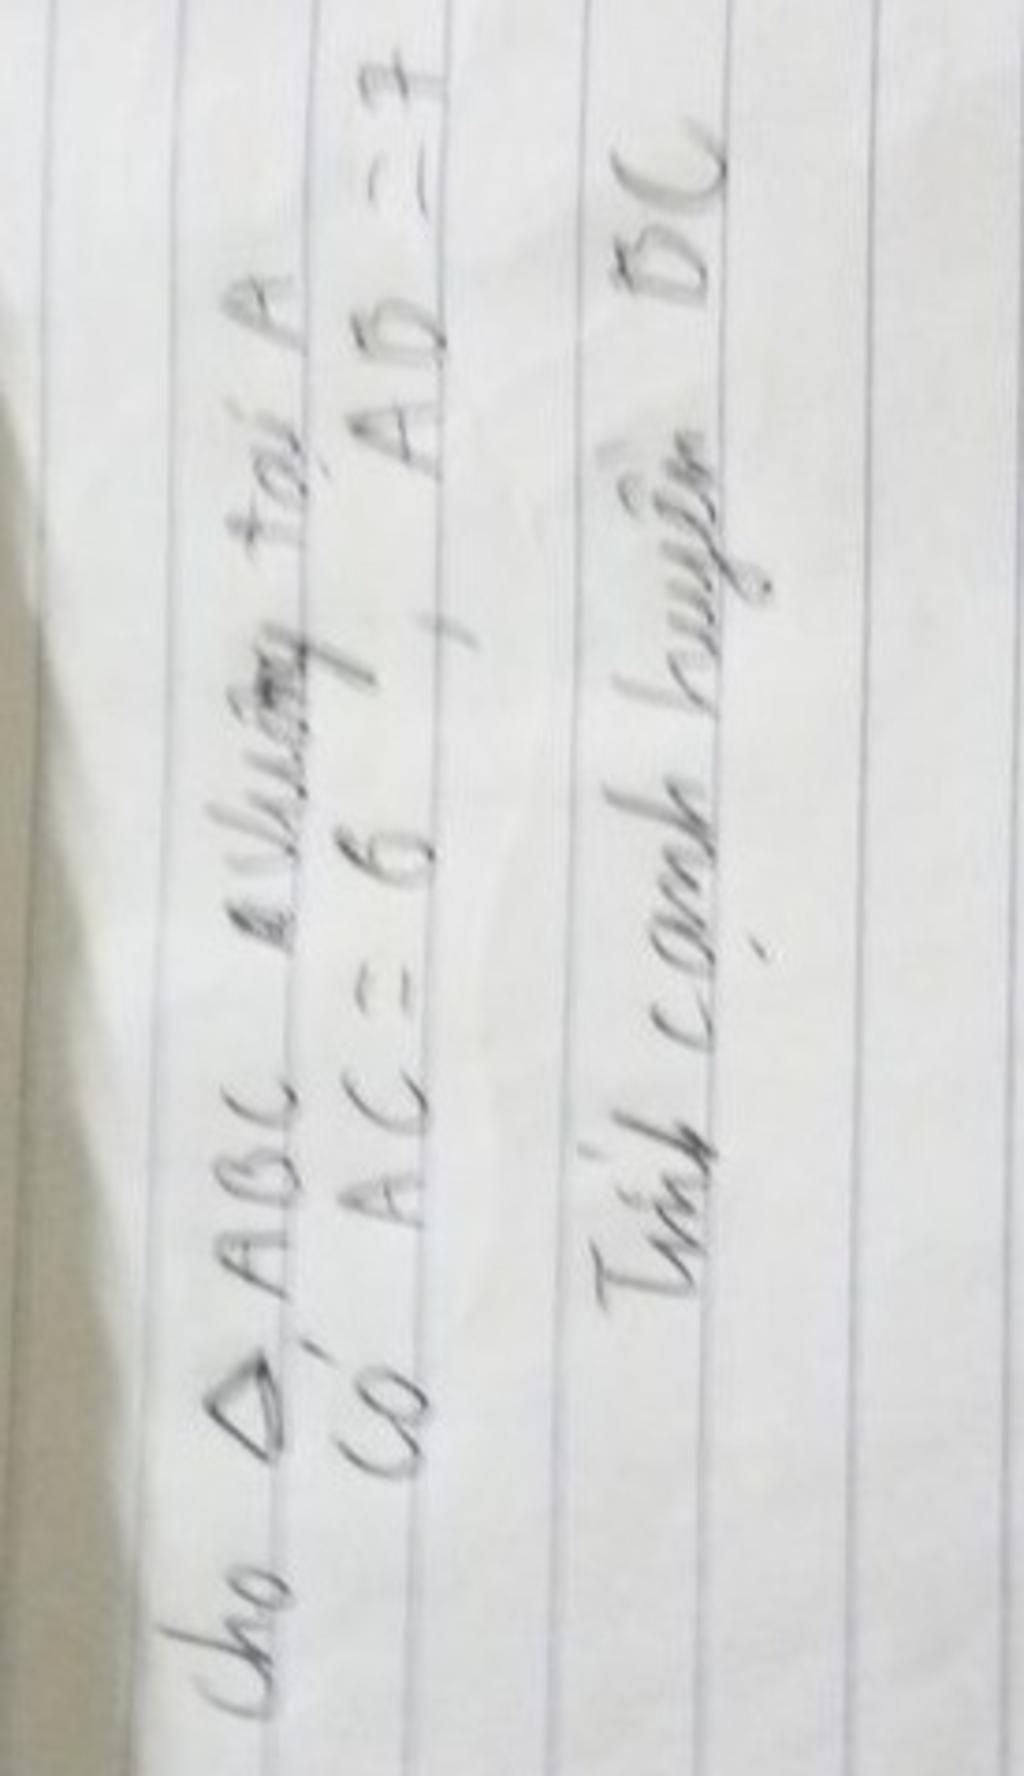 cho Δ ABC vuông tại A
có AC = 6 , AB = 7
Tính cạnh huyền BC